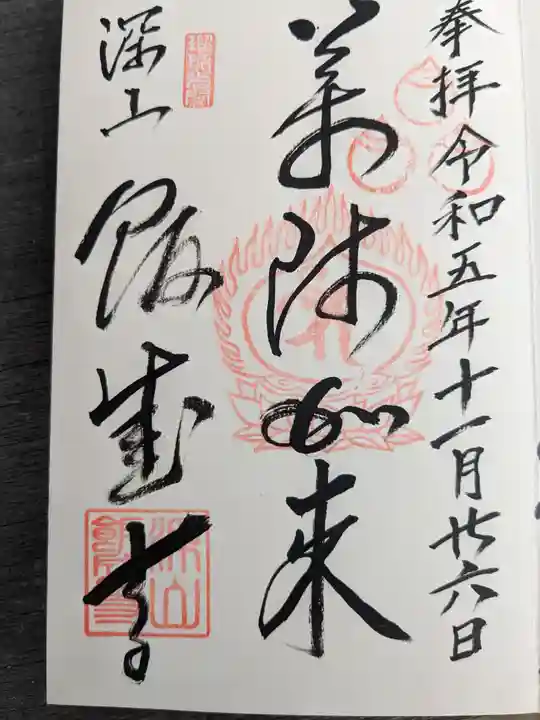 奉拝 令和五年十一月廿六日
薬師如来
深山 飯盛寺